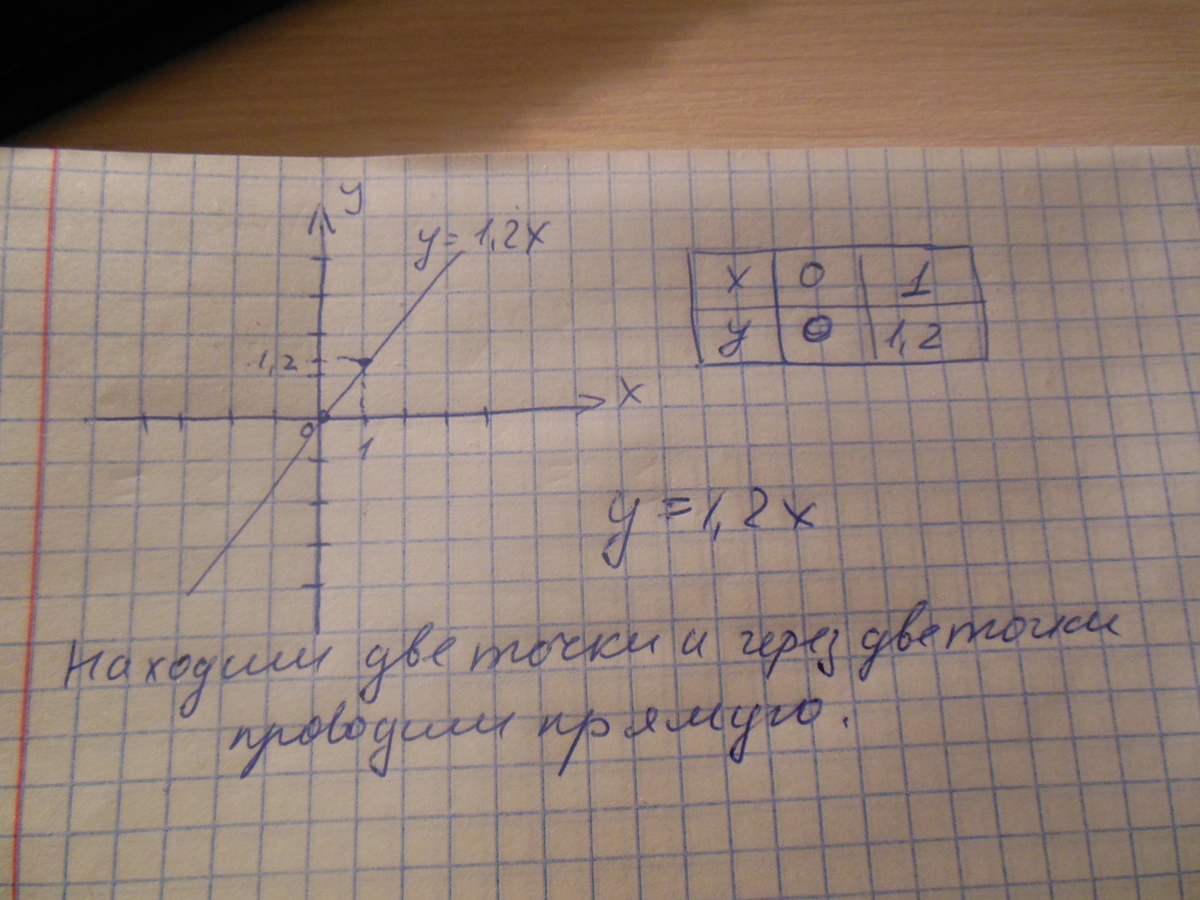 y
y = 1,2x
x 0 1
y 0 1,2
1,2
x
0 1
y = 1,2x
Находим две точки и через две точки
проводим прямую.